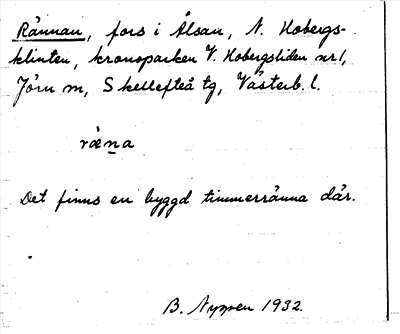 Rännan, fors i Ålsån, N. Hobergs-
klinten, kronoparken V. Hobergsliden nr 1,
Jörn sn, Skellefteå tg, Västerb. l.
ræ̀n̲a
Det finns en byggd timmerränna där.
B. Nygren 1932.